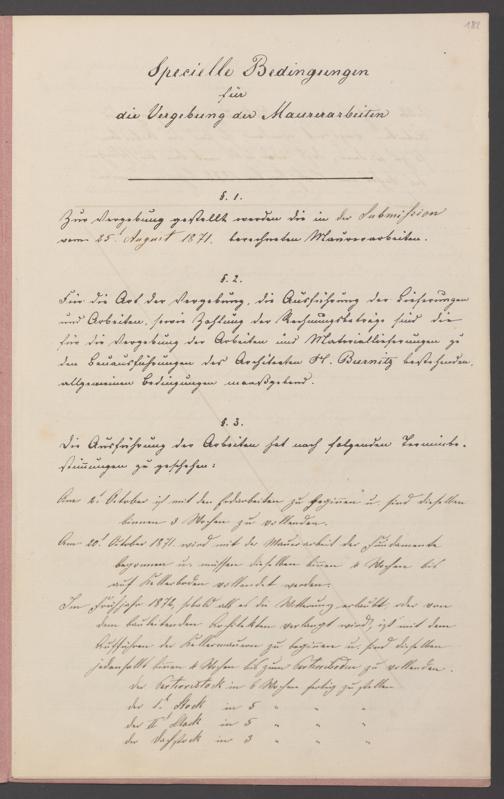 182
Specielle Bedingungen
für
die Vergebung der Maurerarbeiten
§. 1.
Zur Vergebung gestellt werden die in der Submission
vom 25t August 1871. berechneten Maurerarbeiten.
§. 2.
Für die Art der Vergebung, die Ausführung der Lieferungen
und Arbeiten, sowie Zahlung der Rechnungsbeträge sind die
für die Vergebung der Arbeiten und Materiallieferungen zu
den Bauausführungen des Architecten H. Burnitz bestehenden,
allgemeinen Bedingungen maaßgebend.
§. 3.
Die Ausführung der Arbeiten hat nach folgenden Terminbe-
stimmungen zu geschehen:
Am 2t October ist mit den Erdarbeiten zu beginnen u. sind dieselben
binnen 3 Wochen zu vollenden.
Am 20t October 1871. wird mit der Maurerarbeit der Fundamente
begonnen u. müssen dieselben binnen 4 Wochen bis
auf Kellerboden vollendet werden.
Im Frühjahr 1872, sobald als es die Witterung erlaubt, oder von
dem bauleitenden Architekten verlangt wird, ist mit dem
Aufführen der Kellermauern zu beginnen u. sind dieselben
jedenfalls binnen 4 Wochen bis zum zu vollenden.
der in 6 Wochen fertig zu stellen
der It Stock in 5 " " "
der IIt Stock in 5 " " "
der Dachstock in 3 " " "